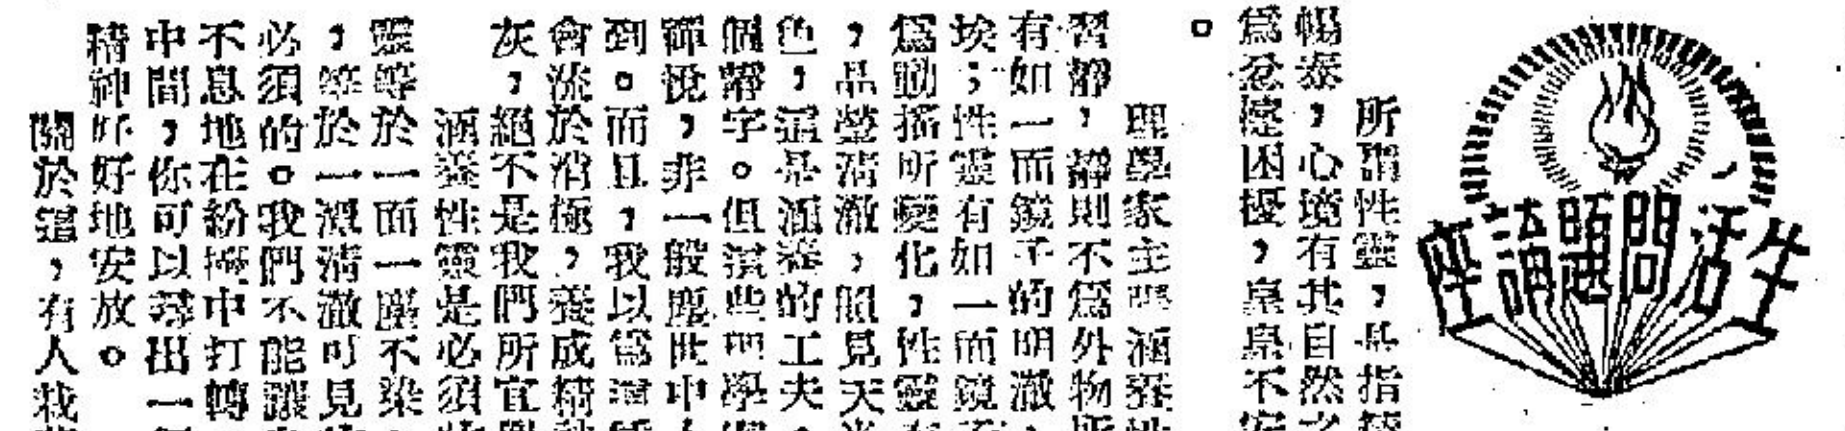 生活問題講座
所謂性靈，是指
暢泰，心境有其自然之
為忿懥困擾，臬臬不安
。
理學家主張涵養性
習靜，靜則不爲外物所
有如一面鏡子的明澈，
埃；性靈有如一面鏡
爲動搖所變化，性靈有
，晶瑩清澈，照見天光
色，這是涵養的工夫。
個靜字。但這些理學
禪悅，非一般塵世中人
到。而且，我以爲這種
會流於消極，養成精神
灰，絕不是我們所宜
涵養性靈是必須
靈等於一面一塵不染，
，等於一潭清澈可見
必須的。我們不能讓
不息地在紛擾中打轉
中間，你可以尋出一
精神好好地安放。
關於這，有人栽